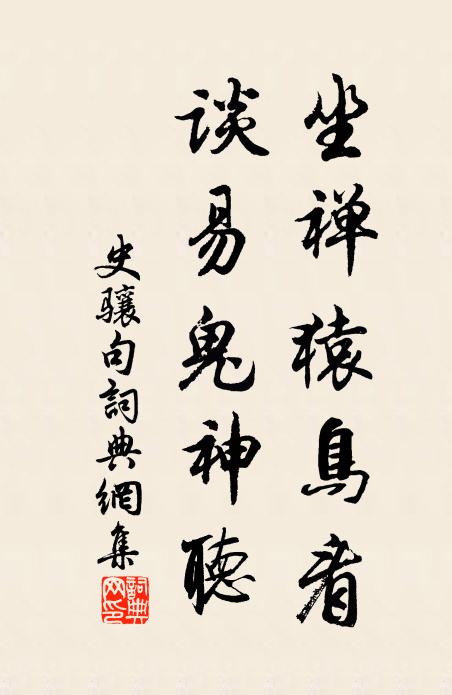 坐禅猿鳥看
談易鬼神聽
史骧句詞典網集
詞典网印